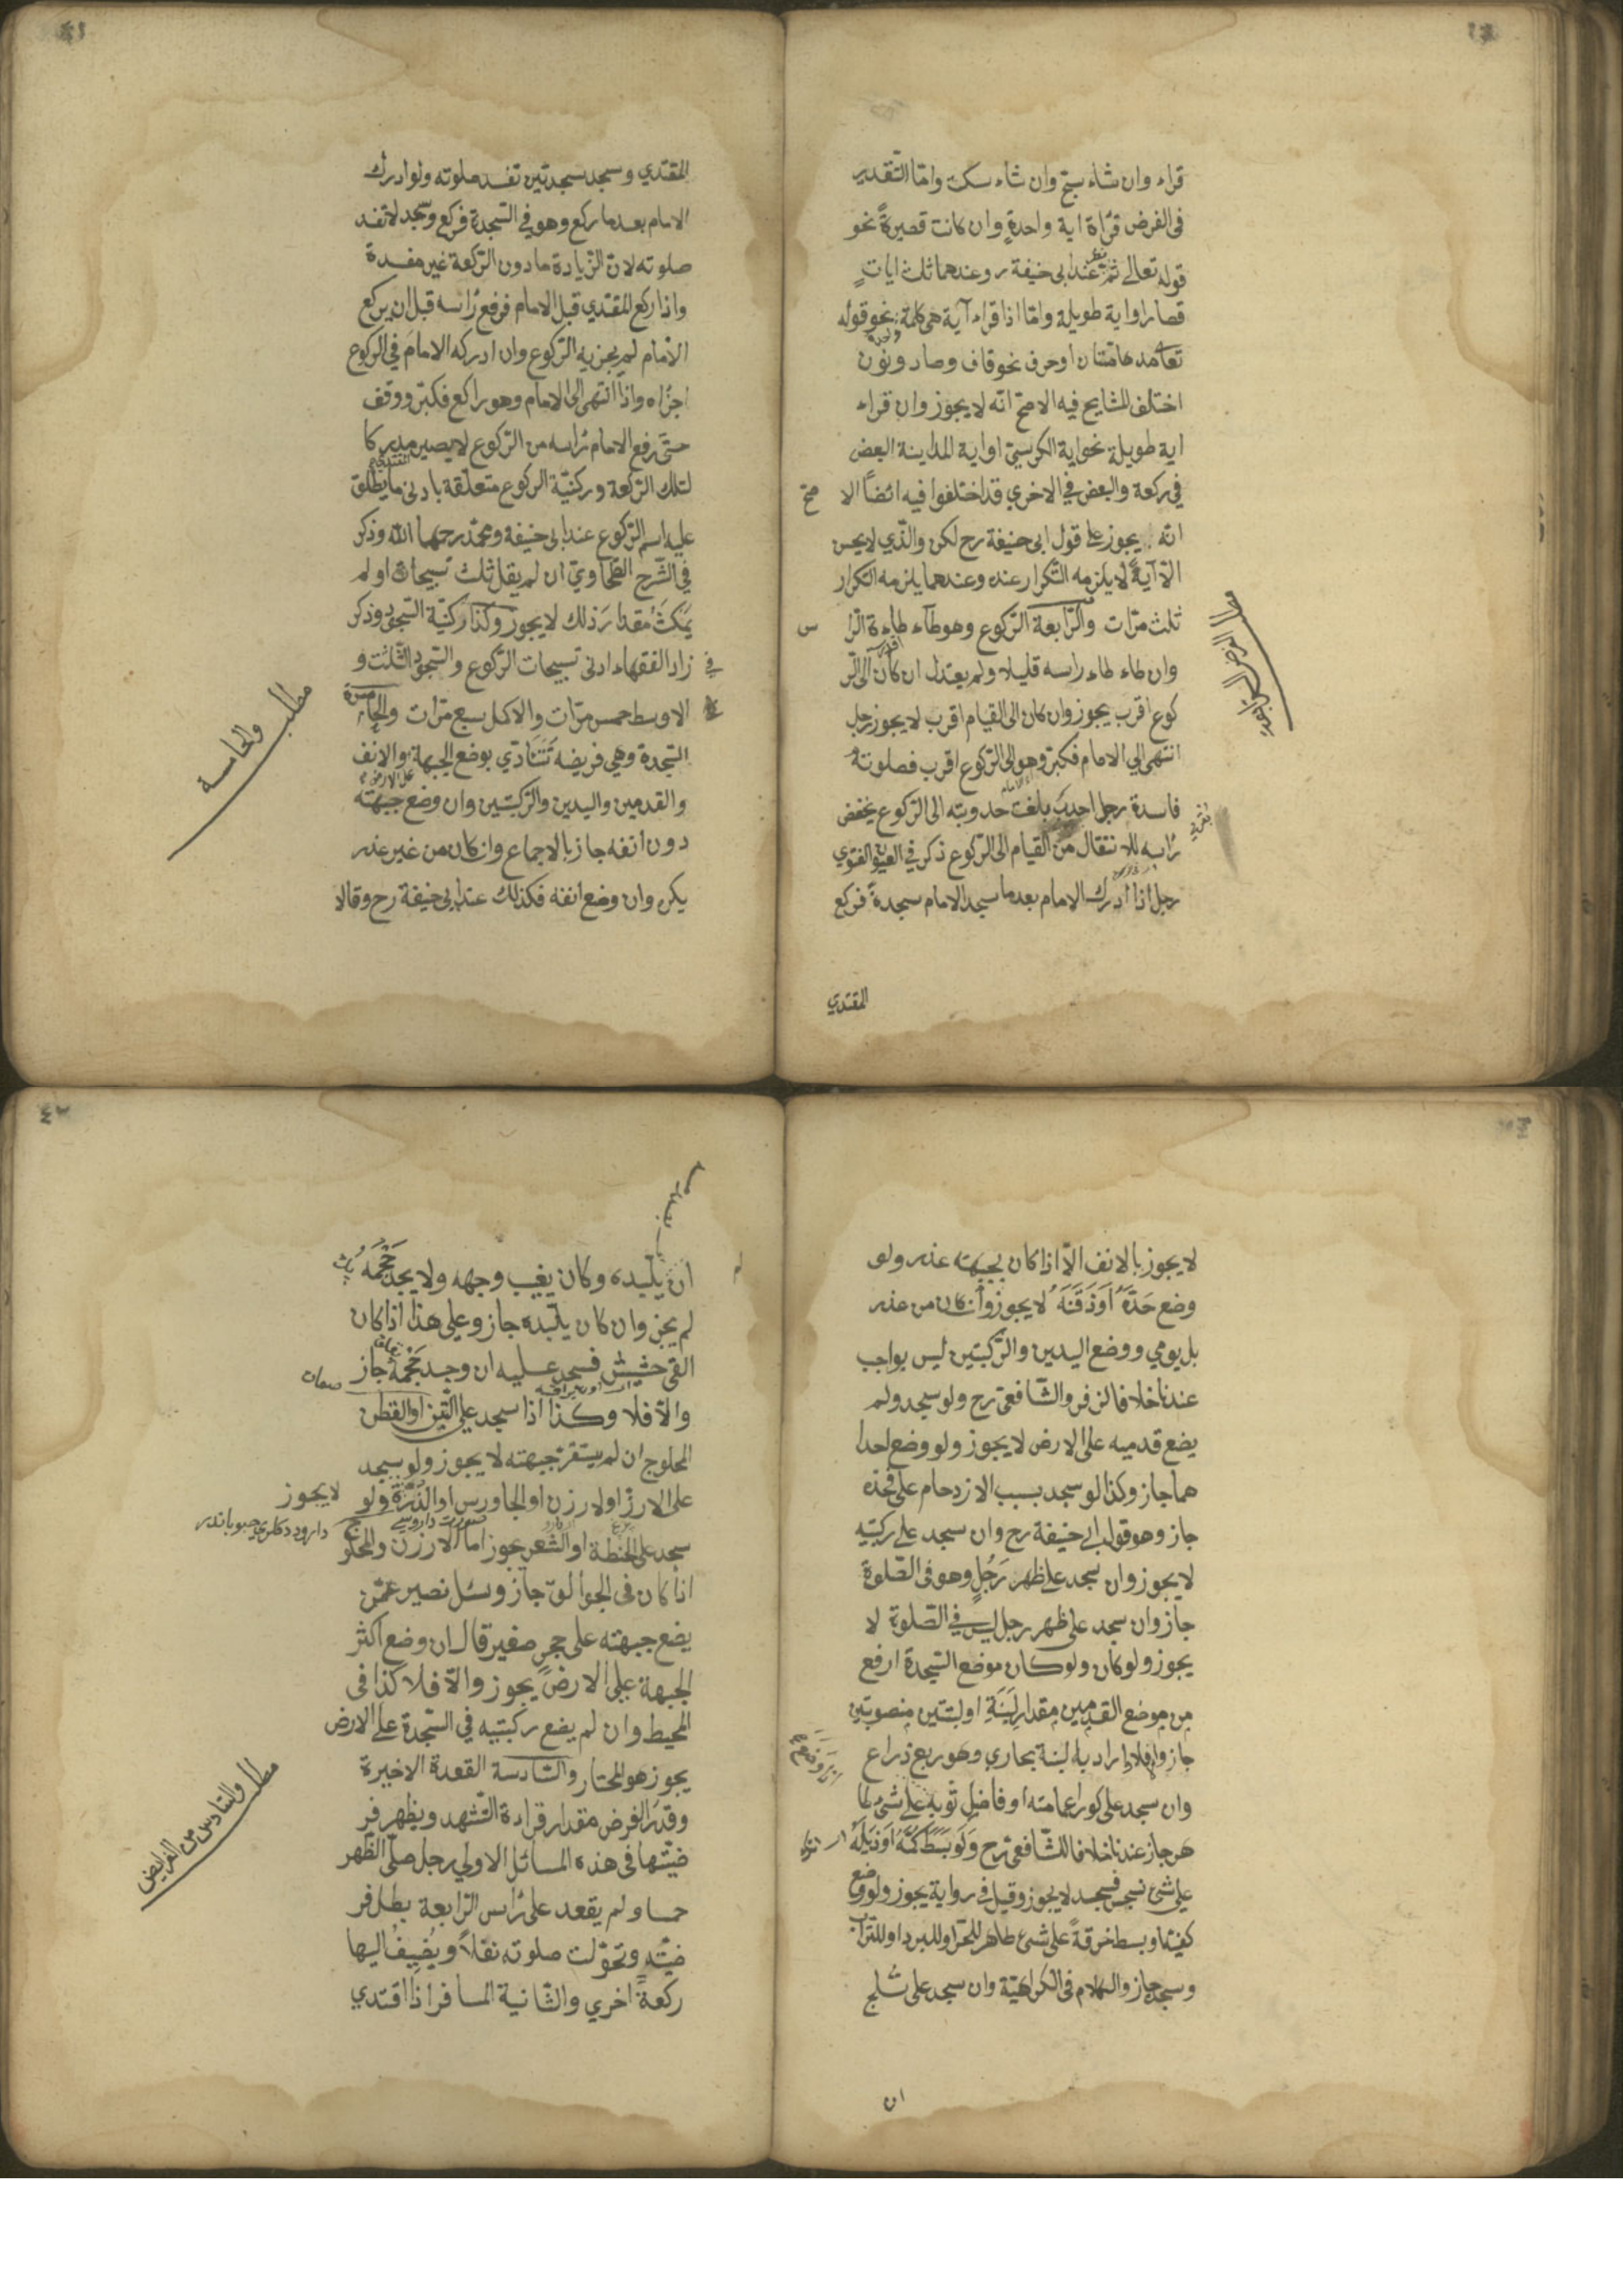 قراء وان شاء سبح وان شاء سكت وامّا التّقدير
فى الفرض قراة اية واحدةٍ وان كانت قصيرةً نحو
قوله تعالى ثمّ نظر عند ابى حنيفة رح وعندهما ثلث اياتٍ
قصار او اية طويلة وامّا اذا قراء آية هى كلمة واحدة نحو قوله
تعا مدهامّتان او حرف نحو قاف وصاد ونون
اختلف المشايخ فيه الاصحّ انّه لا يجوز وان قراء
اية طويلة نحو اية الكرسىّ او اية المداينة البعض
في ركعة والبعض في الاخري قد اختلفوا فيه ائضاً الا صح
انّه يجوز على قول ابى حنيفة رح لكن والّذي لا يحسن
الّا آيةً لا يلزمه التّكرار عنده وعندهما يلزمه التكرار
ثلث مرّات والرّابعة الرّكوع وهو طآء طاءة الرّا س
وان طاء طاء راسه قليلا ولم يعتدل ان كان الى الرّ
كوع اقرب يجوز وان كان الى القيام اقرب لا يجوز رجل
انتهى الي الامام فكبّر وهو الى الرّكوع اقرب فصلوته
فاسدة رجل احدب بلغت حدوبته الى الرّكوع يخفض
رأسه للانتقال من القيام الى الرّكوع ذكر في العيون الفتوي
رجل اذا ادرك الامام بعد ما سجد الامام سجدةً فركع
المقتدي
المقتدي وسجد سجدتين تفسد صلوته ولو ادرك
الامام بعد ما ركع وهو في السّجدة فركع وسجد لا تفسد
صلوته لانّ الزّيادة ما دون الرّكعة غير مفسدة
واذا ركع المقتدي قبل الامام فرفع رأسه قبل ان يركع
الامام لم يجزيه الرّكوع وان ادركه الامام في الركوع
اجزاه واذا انتهى الى الامام وهو راكع فكبّر ووقف
حتّى رفع الامام رأسه من الرّكوع لا يصير مدركا
لتلك الرّكعة وركنيّة الركوع متعلّقة بادنى ما يطلق
عليه اسم الرّكوع عند ابى حنيفة ومحمّد رحهما الله وذكر
في الشّرح الطّحاويّ ان لم يقل ثلث تسبيحات او لم
يمكث مقدار ذلك لا يجوز وكذا ركنيّة السّجود وذكر
في زاد الفقهاء ادنى تسبيحات الرّكوع والسّجود الثّلث و
الاوسط خمس مرّات والاكمل سبع مرّات والخامسة
السّجدة وهى فريضة تتادّي بوضع الجبهة والانف
والقدمين واليدين والرّكبتين وان وضع جبهته على الارض
دون انفه جاز بالاجماع وان كان من غير عذر
يكره وان وضع انفه فكذلك عند ابى حنيفة رح وقالا
مطلب والخامسة
لا يجوز بالانف الّا اذا كان بجبهته عذر ولو
وضع خدّه او ذقنه لا يجوز وان كان من عذر
بل يومي ووضع اليدين والرّكبتين ليس بواجب
عندنا خلافا لزفر والشّافعى رح ولو سجد ولم
يضع قدميه على الارض لا يجوز ولو وضع احدا
هما جاز وكذا لو سجد بسبب الازدحام على فخذه
جاز وهو قول ابى حنيفة رح وان سجد على ركبتيه
لا يجوز وان سجد على ظهر رجلٍ وهو فى الصّلوة
جاز وان سجد على ظهر رجل ليس في الصّلوة لا
يجوز ولو كان ولو كان موضع السّجدة ارفع
من موضع القدمين مقدار لبنة او لبنتين منصوبتين
جاز والّا فلا اراد به لبنة بخاري وهو ربع ذراع
وان سجد على كور عمامته او فاضل ثوبه على شئ طا
هر جاز عندنا خلافا للشّافعى رح ولو بسط كمّه او ذيله
على شئ نجس فسجد لا يجوز وقيل فى رواية يجوز ولو وضع
كفّيه او بسط خرقةً على شئ طاهر للحرّ او للبرد او للتراب
وسجد جاز والكلام فى الكراهيّة وان سجد على ثلج
ان
ان يلبّده وكان يغيب وجهه ولا يجد حجمه
لم يجز وان كان يلبّده جاز وعلى هذا اذا كان
القى حشيش فسجد عليه ان وجد حجمه جاز
والّا فلا وكذا اذا سجد على التّبن او القطن
المحلوج ان لم يستقرّ جبهته لا يجوز ولو سجد
على الارز او لارزن او الجاورس او الذّرة لا يجوز ولو
سجد على الحنطة او الشّعير يجوز امّا الارزن والمحلوج
اذا كان فى الجوالق جاز وسئل نصير عمّن
يضع جبهته على حجرٍ صغير قال ان وضع اكثر
الجبهة على الارض يجوز والّا فلا كذا فى
المحيط وان لم يضع ركبتيه في السّجدة على الارض
يجوز هو المختار والسّادسة القعدة الاخيرة
وقدر الفرض مقدار قراءة التّشهد ويظهر فر
ضيّتها فى هذه المسائل الاولى رجل صلّى الظّهر
خمسا ولم يقعد على رأس الرّابعة بطل فر
ضيّته وتحوّلت صلوته نفلاً ويضيف اليها
ركعة اخري والثّانية المسافر اذا اقتدي
مطلب والسّادس من الفرايض